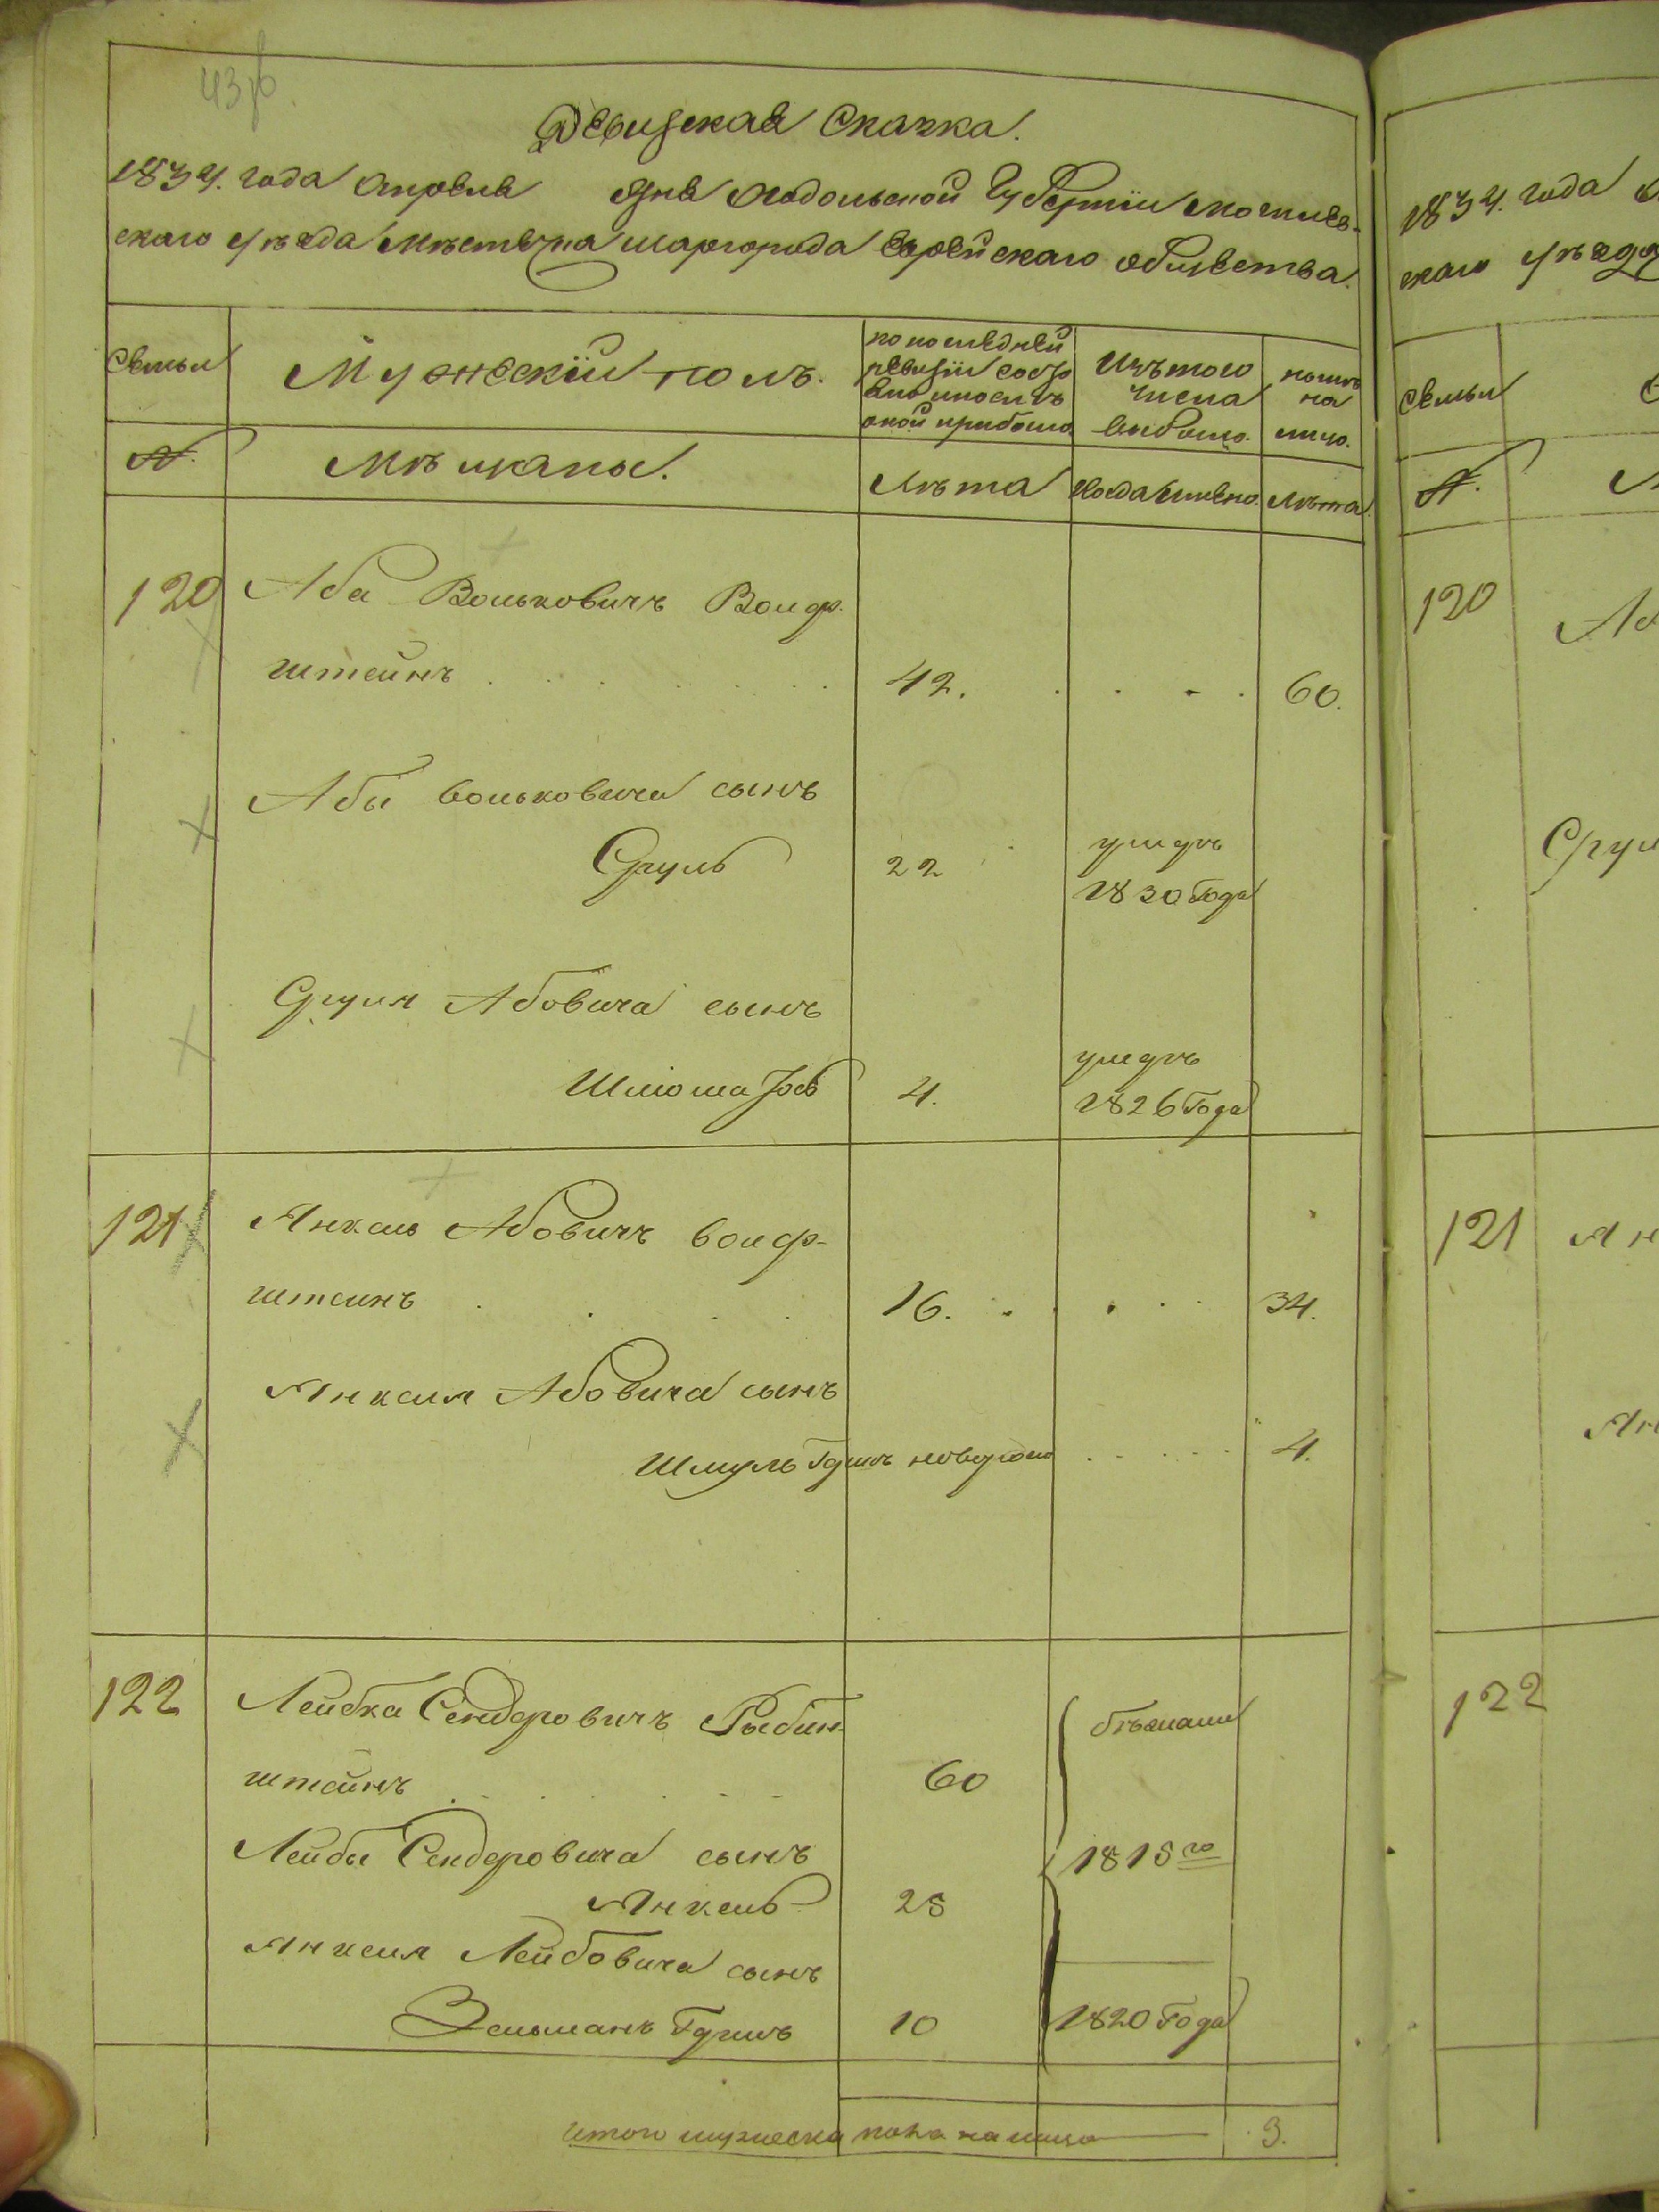 Ревизская Сказка.
1834. года Апреля дня Подольской Губернiи Могилев-
скаго уезда Мѣстечка Шаргорода Еврейскаго общества.
Семьи
Мужескiй полъ.
по последней
ревизiи состо
яло и после
оной прибыло
Изъ того
числа
выбыло.
ныне
на
лицо.
№.
Мѣщаны.
Лѣта
Когда имено.
Лѣта.
120
Аба Вольковичъ Волф-
штейнъ
42.
60.
Абы Вольковича сынъ
Сруль
22
умеръ
1830 Года
Сруля Абовича сынъ
Шлiома
4.
умеръ
1826 Года
121
Янкель Абовичъ Волф-
штеинъ
16.
34.
Янкеля Абовича сынъ
Шмуль Гершъ
4.
122
Лейбка Сендеровичъ Рыбин-
штейнъ
60
бѣжали
Лейбы Сендеровича сынъ
1818 го
Янкель
28
Янкеля Лейбовича сынъ
Зельманъ Гершъ
10
1820 Года
Итого мужеска пола на лицо
3.
1834. года
скаго уезда
Семьи
№.
120
Аб
Срул
121
Ян
Ян
122